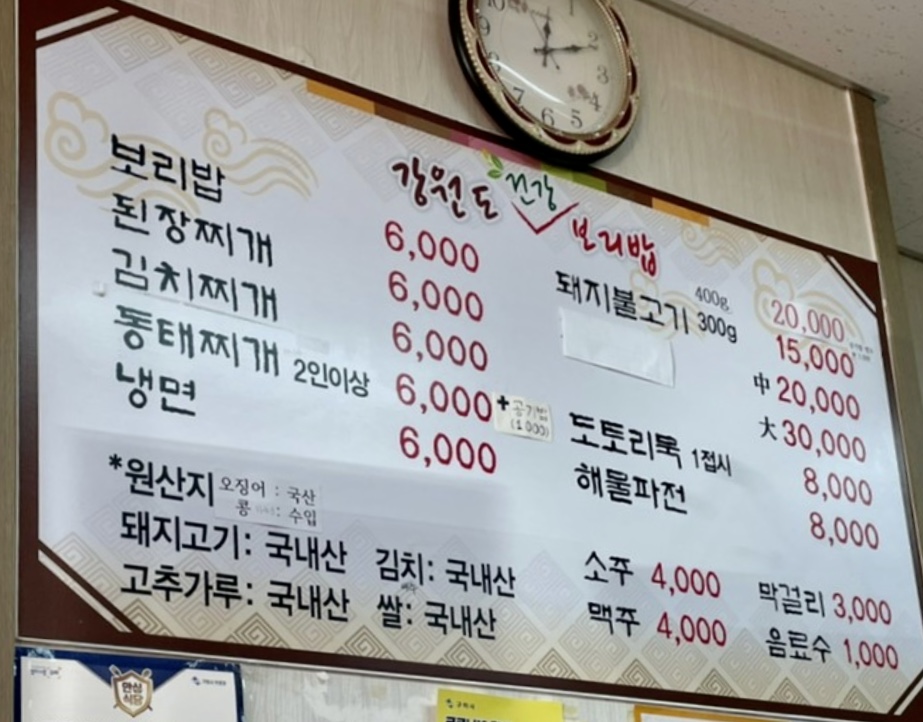 강원도 건강 보리밥
보리밥 6,000
된장찌개 6,000
김치찌개 6,000
동태찌개 2인이상 6,000 + 공기밥 (1,000)
냉면 6,000
돼지불고기 400g 20,000
300g 15,000
中 20,000
大 30,000
도토리묵 1접시 8,000
해물파전 8,000
*원산지 오징어 : 국산
콩 : 수입
돼지고기: 국내산 김치: 국내산
고추가루: 국내산 쌀: 국내산
소주 4,000 막걸리 3,000
맥주 4,000 음료수 1,000
안심
식당
10 1 2 3 4 5 6 7 8 9